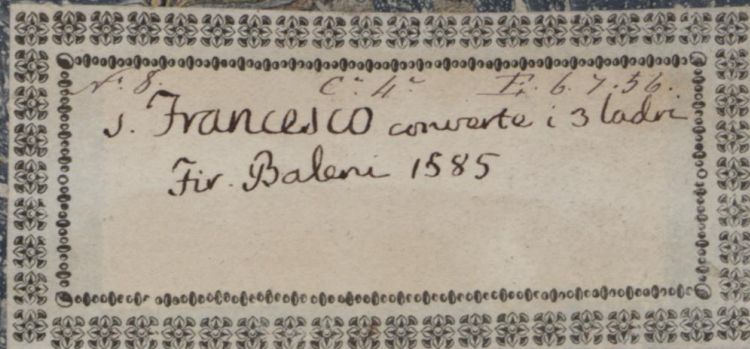 N. 8. C. 4. E. 6. 7. 56.
S. Francesco converte i 3 ladri
Fir. Baleni 1585